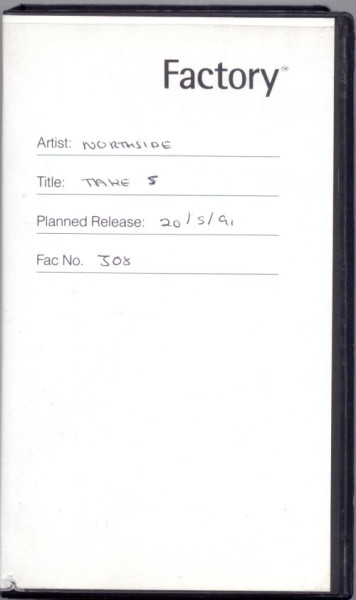 Factory
Artist: NORTHSIDE
Title: TAKE 5
Planned Release: 20/5/91
Fac No. 308